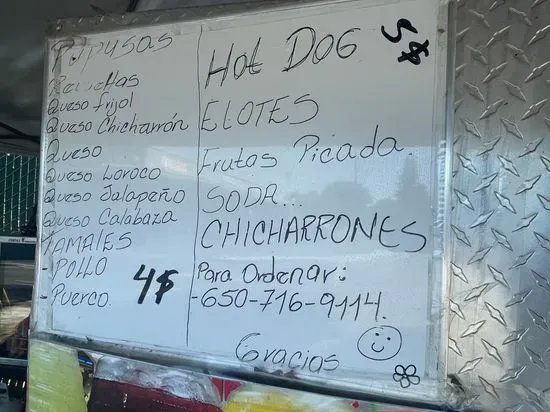 Pupusas
Revueltas
Queso frijol
Queso Chicharrón
Queso
Queso Loroco
Queso Jalapeño
Queso Calabaza
TAMALES
- Pollo
- Puerco. 4$
Hot DOG 5$
ELOTES
Frutas Picada.
SODA...
CHICHARRONES
Para Ordenar:
-650-716-9114.
Gracias